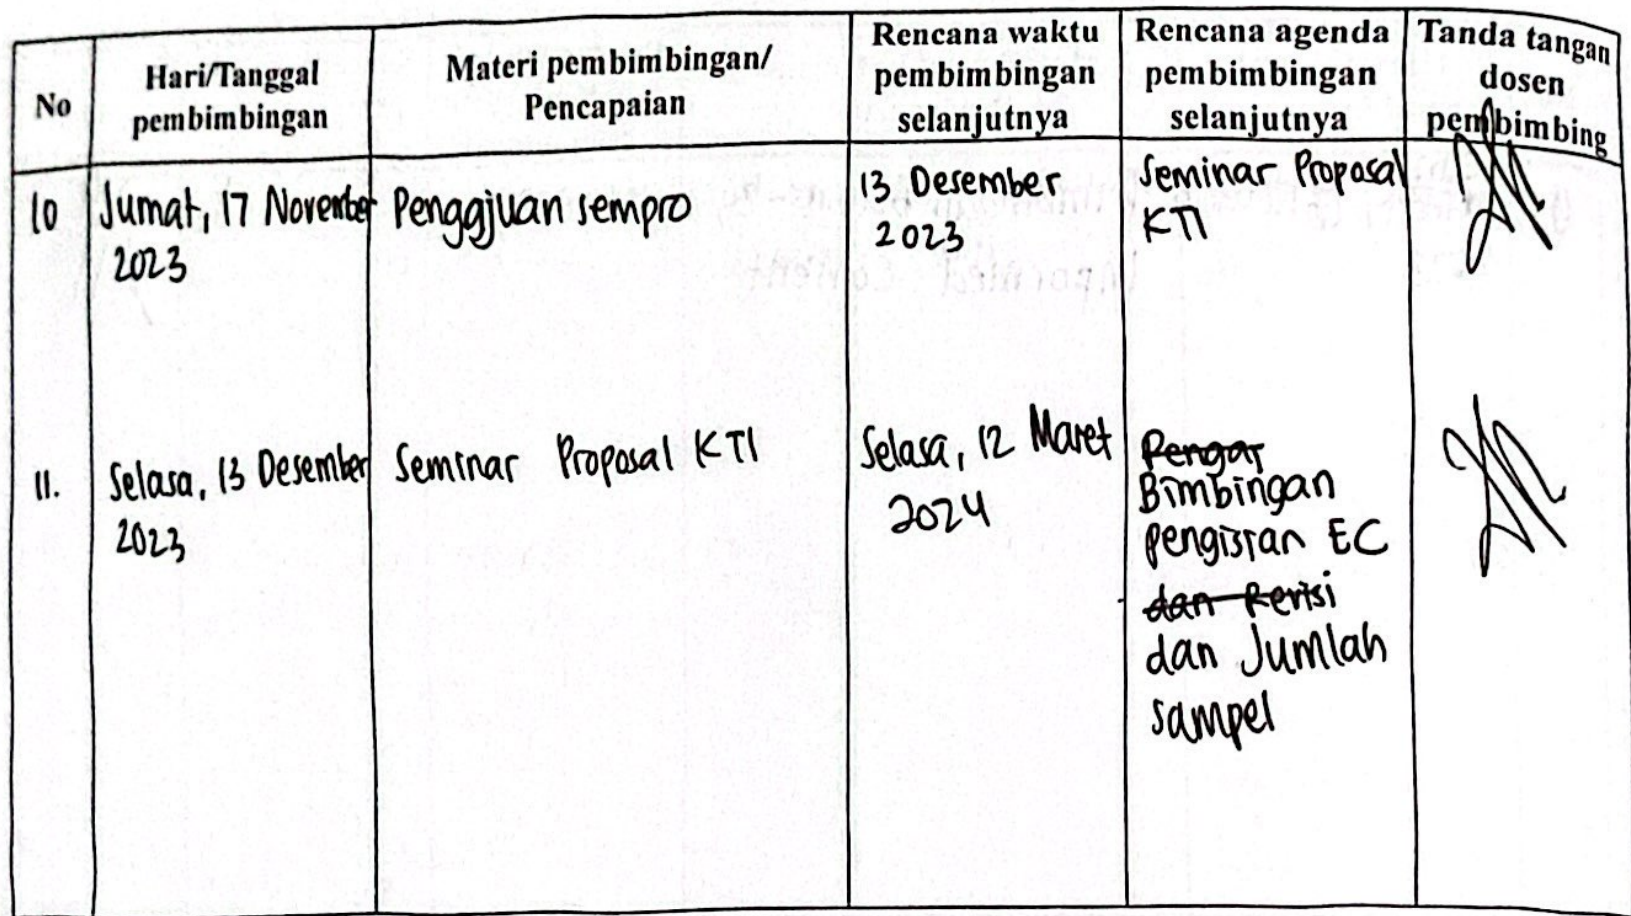 No
Hari/Tanggal
pembimbingan
Materi pembimbingan/
Pencapaian
Rencana waktu
pembimbingan
selanjutnya
Rencana agenda
pembimbingan
selanjutnya
Tanda tangan
dosen
pembimbing
10
Jumat, 17 November
2023
Penggjuan sempro
13 Desember
2023
Seminar Proposal
KTI
11.
Selasa, 13 Desember
2023
Seminar Proposal KTI
Selasa, 12 Maret
2024
Pengar
Bimbingan
pengisian EC
dan Revisi
dan Jumlah
sampel